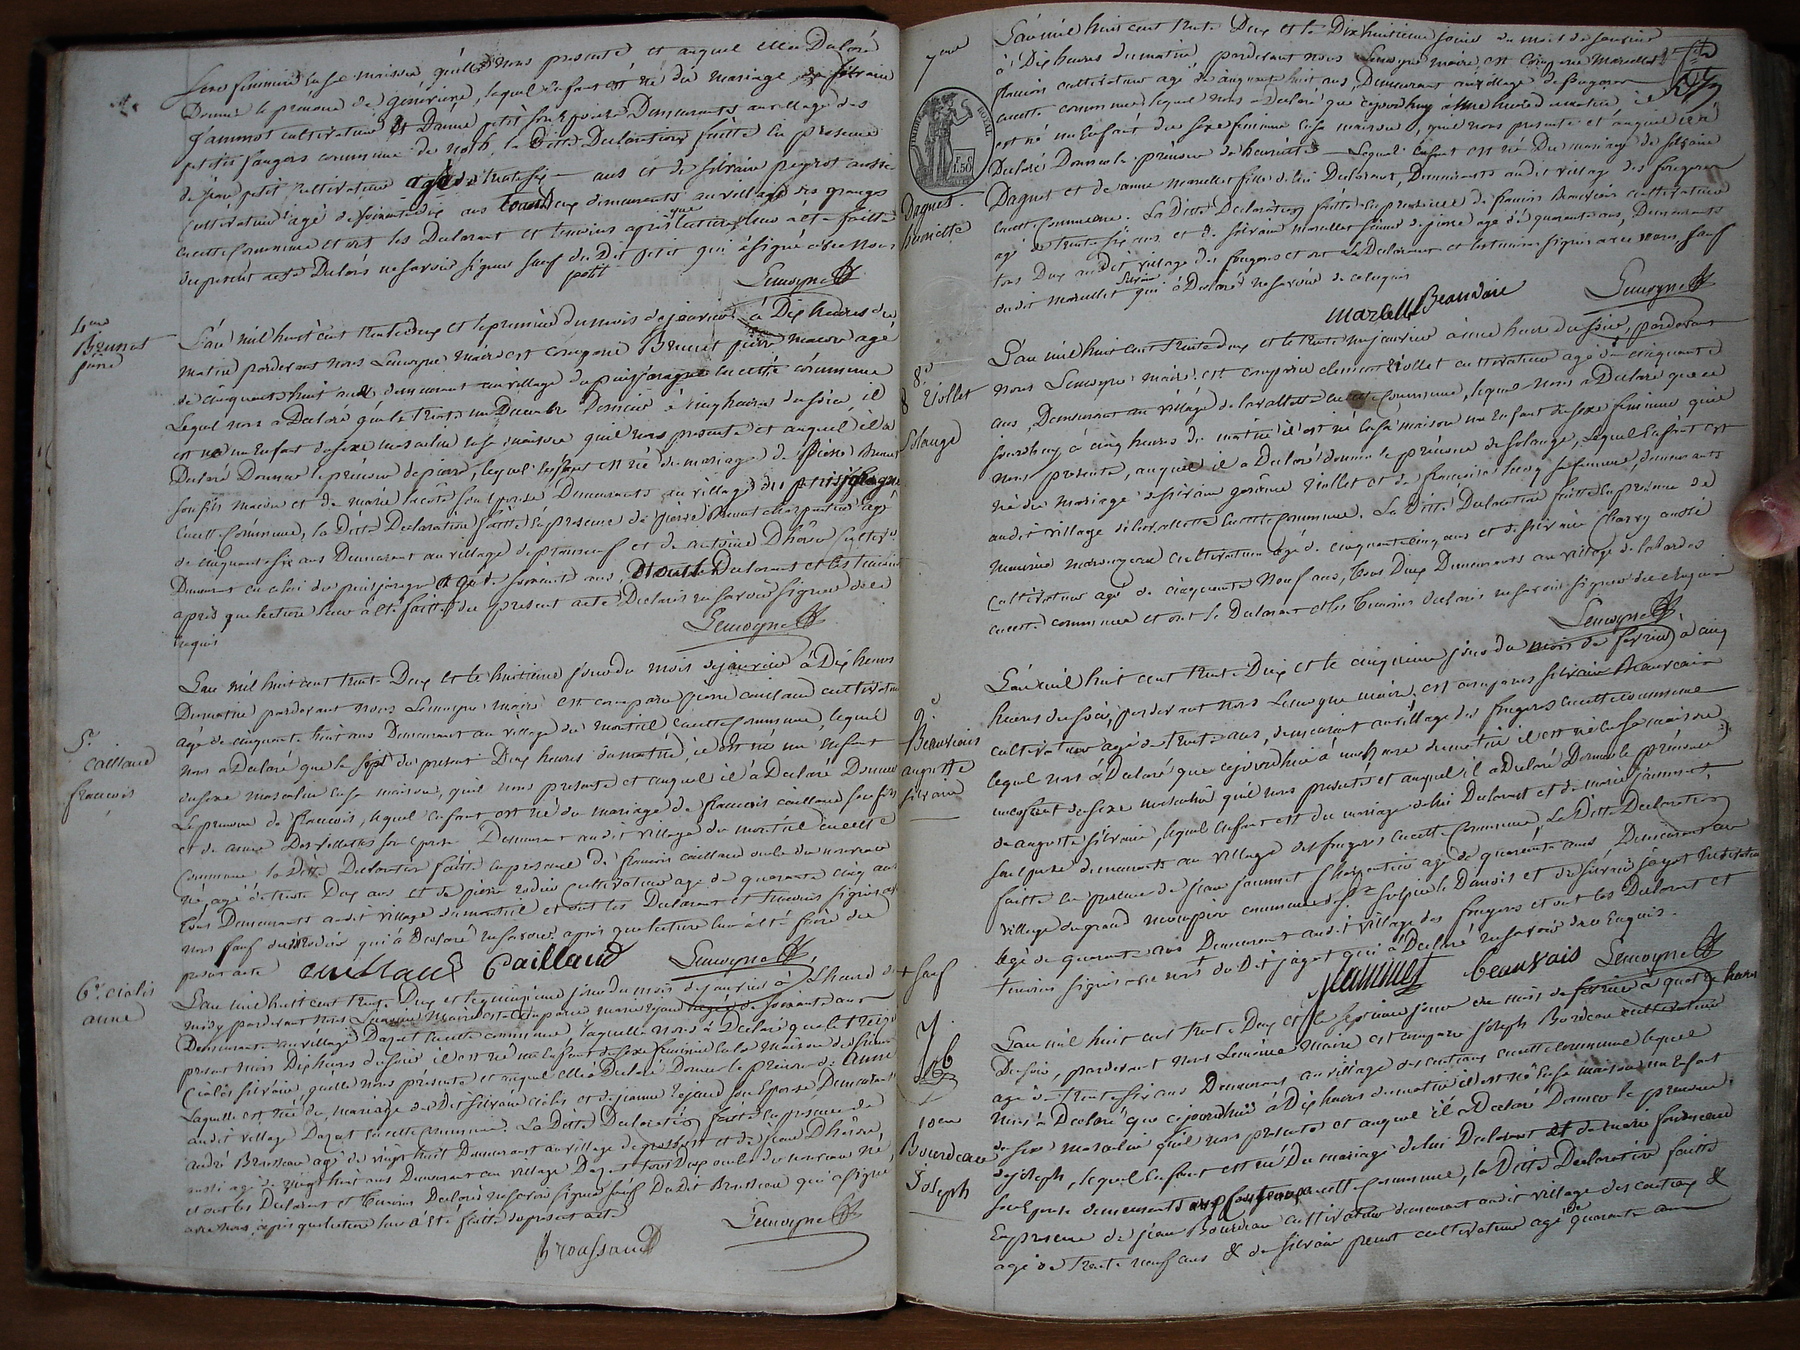 sexe féminin en sa maison, qu'elle nous presente et auquel elle a Declaré
Donner le prénom de génévieve, lequel enfant est né du mariage de silvain
Jammot cultivateur et Danne petit son Epouse Demeurants au village des
petites fougers commune de noth, la Ditte Declaration faitte en presence
de jean petit cultivateur agé de trente six ans et de silvain peyrot aussi
cultivateur agé de soixante dix ans tous deux demeurants au village des granges
en cette Commune et ont les Declarant et temoins après que lecture leur a été faitte
du present acte Declaré ne savoir signer sauf du Dit petit qui a signé avec nous
petit Lemoyne
4eme
Brunet
pierre
L'an mil huit cent trente deux et le premier du mois de janvier à Dix heures du
matin pardevant nous Lemoyne maire est comparu Brunet pierre macon agé
de cinquante huit ans demeurant au village du puisjoragne en cette commune
Lequel nous a Declaré que le trente un Decembre Dernier à cinq heures du soir, il
est né un Enfant du sexe masculin en sa maison qu'il nous presente et auquel il a
Declaré Donner le prénom de pierre, lequel enfant est né du mariage de Pierre Brunet
son fils macon et de marie lacôte son Epouse Demeurants au village du puisjoragne
en cette Commune, la Ditte Declaration faitte en presence de pierre Brunet charpentier agé
de cinquante six ans Demeurant au village de et de antoine Dhéron cultiv
Demeurant en celui du puisjoragne agé de soixante ans, et ont le Declarant et les temoins
après que lecture leur a été faitte du present acte Declarés ne savoir signer de ce
enquis
Lemoyne
5e
caillaud
francois
L'an mil huit cent trente Deux et le huitieme jour du mois de janvier à Dix heures
Du matin pardevant nous Lemoyne maire est comparu pierre caillaud cultivateur
agé de cinquante huit ans Demeurant au village du montiel en cette Commune, lequel
nous a Declaré que le sept du present Deux heures du matin, il est né un enfant
du sexe masculin en sa maison, qu'il nous presente et auquel il a Declaré Donner
Le prenom de francois, lequel enfant est né du mariage de francois caillaud son fils
et de anne Desvillettes son Epouse Demeurant audit village du montiel en cette
Commune la Ditte Declaration faitte en presence de francois caillaud oncle du nouveau
né, agé de trente Deux ans et de pierre cultivateur agé de quarante cinq ans
tous Demeurants audit village du montiel et ont les Declarant et temoins signé avec
nous sauf du qui a Declaré ne savoir après que lecture leur a été faite du
present acte caillaud Caillaud Lemoyne
6e cialis
anne
L'an mil huit cent trente Deux et le quinzieme jour du mois de janvier à L'heure de
midy pardevant nous Lemoyne Maire est comparue marie rejaud agée de soixante ans
Demeurante au village Dazat en cette commune laquelle nous a Declaré que le treize
present mois Dix heures du soir il est né un Enfant du sexe feminin en la Maison de
Cialis silvain, qu'elle nous presente et auquel elle a Declaré Donner le prenom de Anne
Laquelle est née du mariage du Dit silvain cialis et de jeanne rejaud son Epouse Demeurant
audit village Dazat en cette Commune. La Ditte Declaration faitte en presence de
andré Brousseau agé de vingt huit Demeurant au village de et de jean Dhéron
aussi agé de vingt huit ans Demeurant au village Dazat tous Deux oncle du nouveau né
et ont les Declarant et temoins Declaré ne savoir signer sauf Du Dit Brousseau qui a signé
avec nous, après que lecture leur a été faitte du present acte
Broussaud Lemoyne
7eme
TIMBRE ROYAL
1.50
Daguet
Henriette
L'an mil huit cent trente Deux et le Dixhuitieme jour du mois de janvier
à Dix heures du matin pardevant nous Lemoyne maire est comparu Marcellet
francois cultivateur agé de cinquante huit ans, Demeurant au village de fougeres
en cette commune lequel nous a Declaré que cejourdhuy à une heure du matin il
est né un Enfant du sexe feminin en sa maison, qu'il nous presente et auquel il a
Declaré Donner le prénom de henriette Lequel Enfant est né Du mariage de silvain
Daguet et de anne Marcellet fille de lui Declarant, Demeurants audit village des fougeres
en cette Commune. La Ditte Declaration faitte en presence de francois Beauvais cultivateur
agé de trente six ans et de silvain Marcellet agé de quarante ans, Demeurants
tous Deux audit village des fougeres et ont le Declarant et les temoins signé avec nous sauf
dudit Marcellet silvain qui a Declaré ne savoir de ce enquis
marcellet Beauvais Lemoyne
8e
Viollet
Solange
L'an mil huit cent trente deux et le trente un janvier à une heure du soir, pardevant
nous Lemoyne maire est comparu clement Viollet cultivateur agé de cinquante
ans, Demeurant au village de lavallette en cette Commune, lequel nous a Declaré que ce
jourdhuy à cinq heures du matin il est né en sa maison un Enfant du sexe feminin qu'il
nous presente, auquel il a Declaré donner le prénom de solange, Lequel Enfant est
né du mariage de silvain Viollet et de francoise sa femme, demeurants
audit village de lavallette en cette Commune. La Ditte Declaration faitte en presence de
cultivateur agé de cinquante cinq ans et de silvain Charry aussi
cultivateur agé de cinquante Neuf ans, tous Deux Demeurants au village de
en cette commune et ont le Declarant et les temoins declarés ne savoir signer de ce enquis
Lemoyne
9e
Beauvais
auguste
silvain
L'an mil huit cent trente Deux et le cinquieme jour du mois de fevrier à cinq
heures du soir, pardevant nous Lemoyne maire, est comparu silvain Beauvais
cultivateur agé de trente ans, demeurant au village des fougeres en cette commune
lequel nous a Declaré que cejourdhui à une heure du matin il est né en sa maison
un enfant du sexe masculin qu'il nous presente et auquel il a Declaré Donner le prénom
de auguste silvain, lequel Enfant est du mariage de lui Declarant et de marie jammet
son Epouse demeurants au village des fougeres en cette Commune, La Ditte Declaration
faitte en presence de jean jammet charpentier agé de quarante ans Demeurant au
village du grand commune de St sulpice le Dunois et de silvain jagot cultivateur
agé de quarante ans Demeurant audit village des fougeres et ont les Declarant et
temoins signé avec nous + du Dit jagot qui a Declaré ne savoir de ce Enquis.
+ sauf
jammet beauvais Lemoyne
10eme
Bourdeau
Joseph
L'an mil huit cent trente Deux et le septieme jour du mois de fevrier à quatre heures
Du soir, pardevant nous Lemoine maire est comparu joseph Bordeau cultivateur
agé de trente six ans Demeurant au village des coutions en cette commune lequel
nous a Declaré que cejourdhui à Dix heures du matin il est né en sa maison un Enfant
du sexe masculin qu'il nous presente et auquel il a Declaré Donner le prenom
de joseph, lequel Enfant est né Du mariage de lui Declarant et de marie
son Epouse demeurants aux en cette Commune, la Ditte Declaration faitte
En presence de jean Bourdeau cultivateur demeurant audit village des coutions &
agé de trente neuf ans & de silvain peuvot cultivateur agé de quarante ans